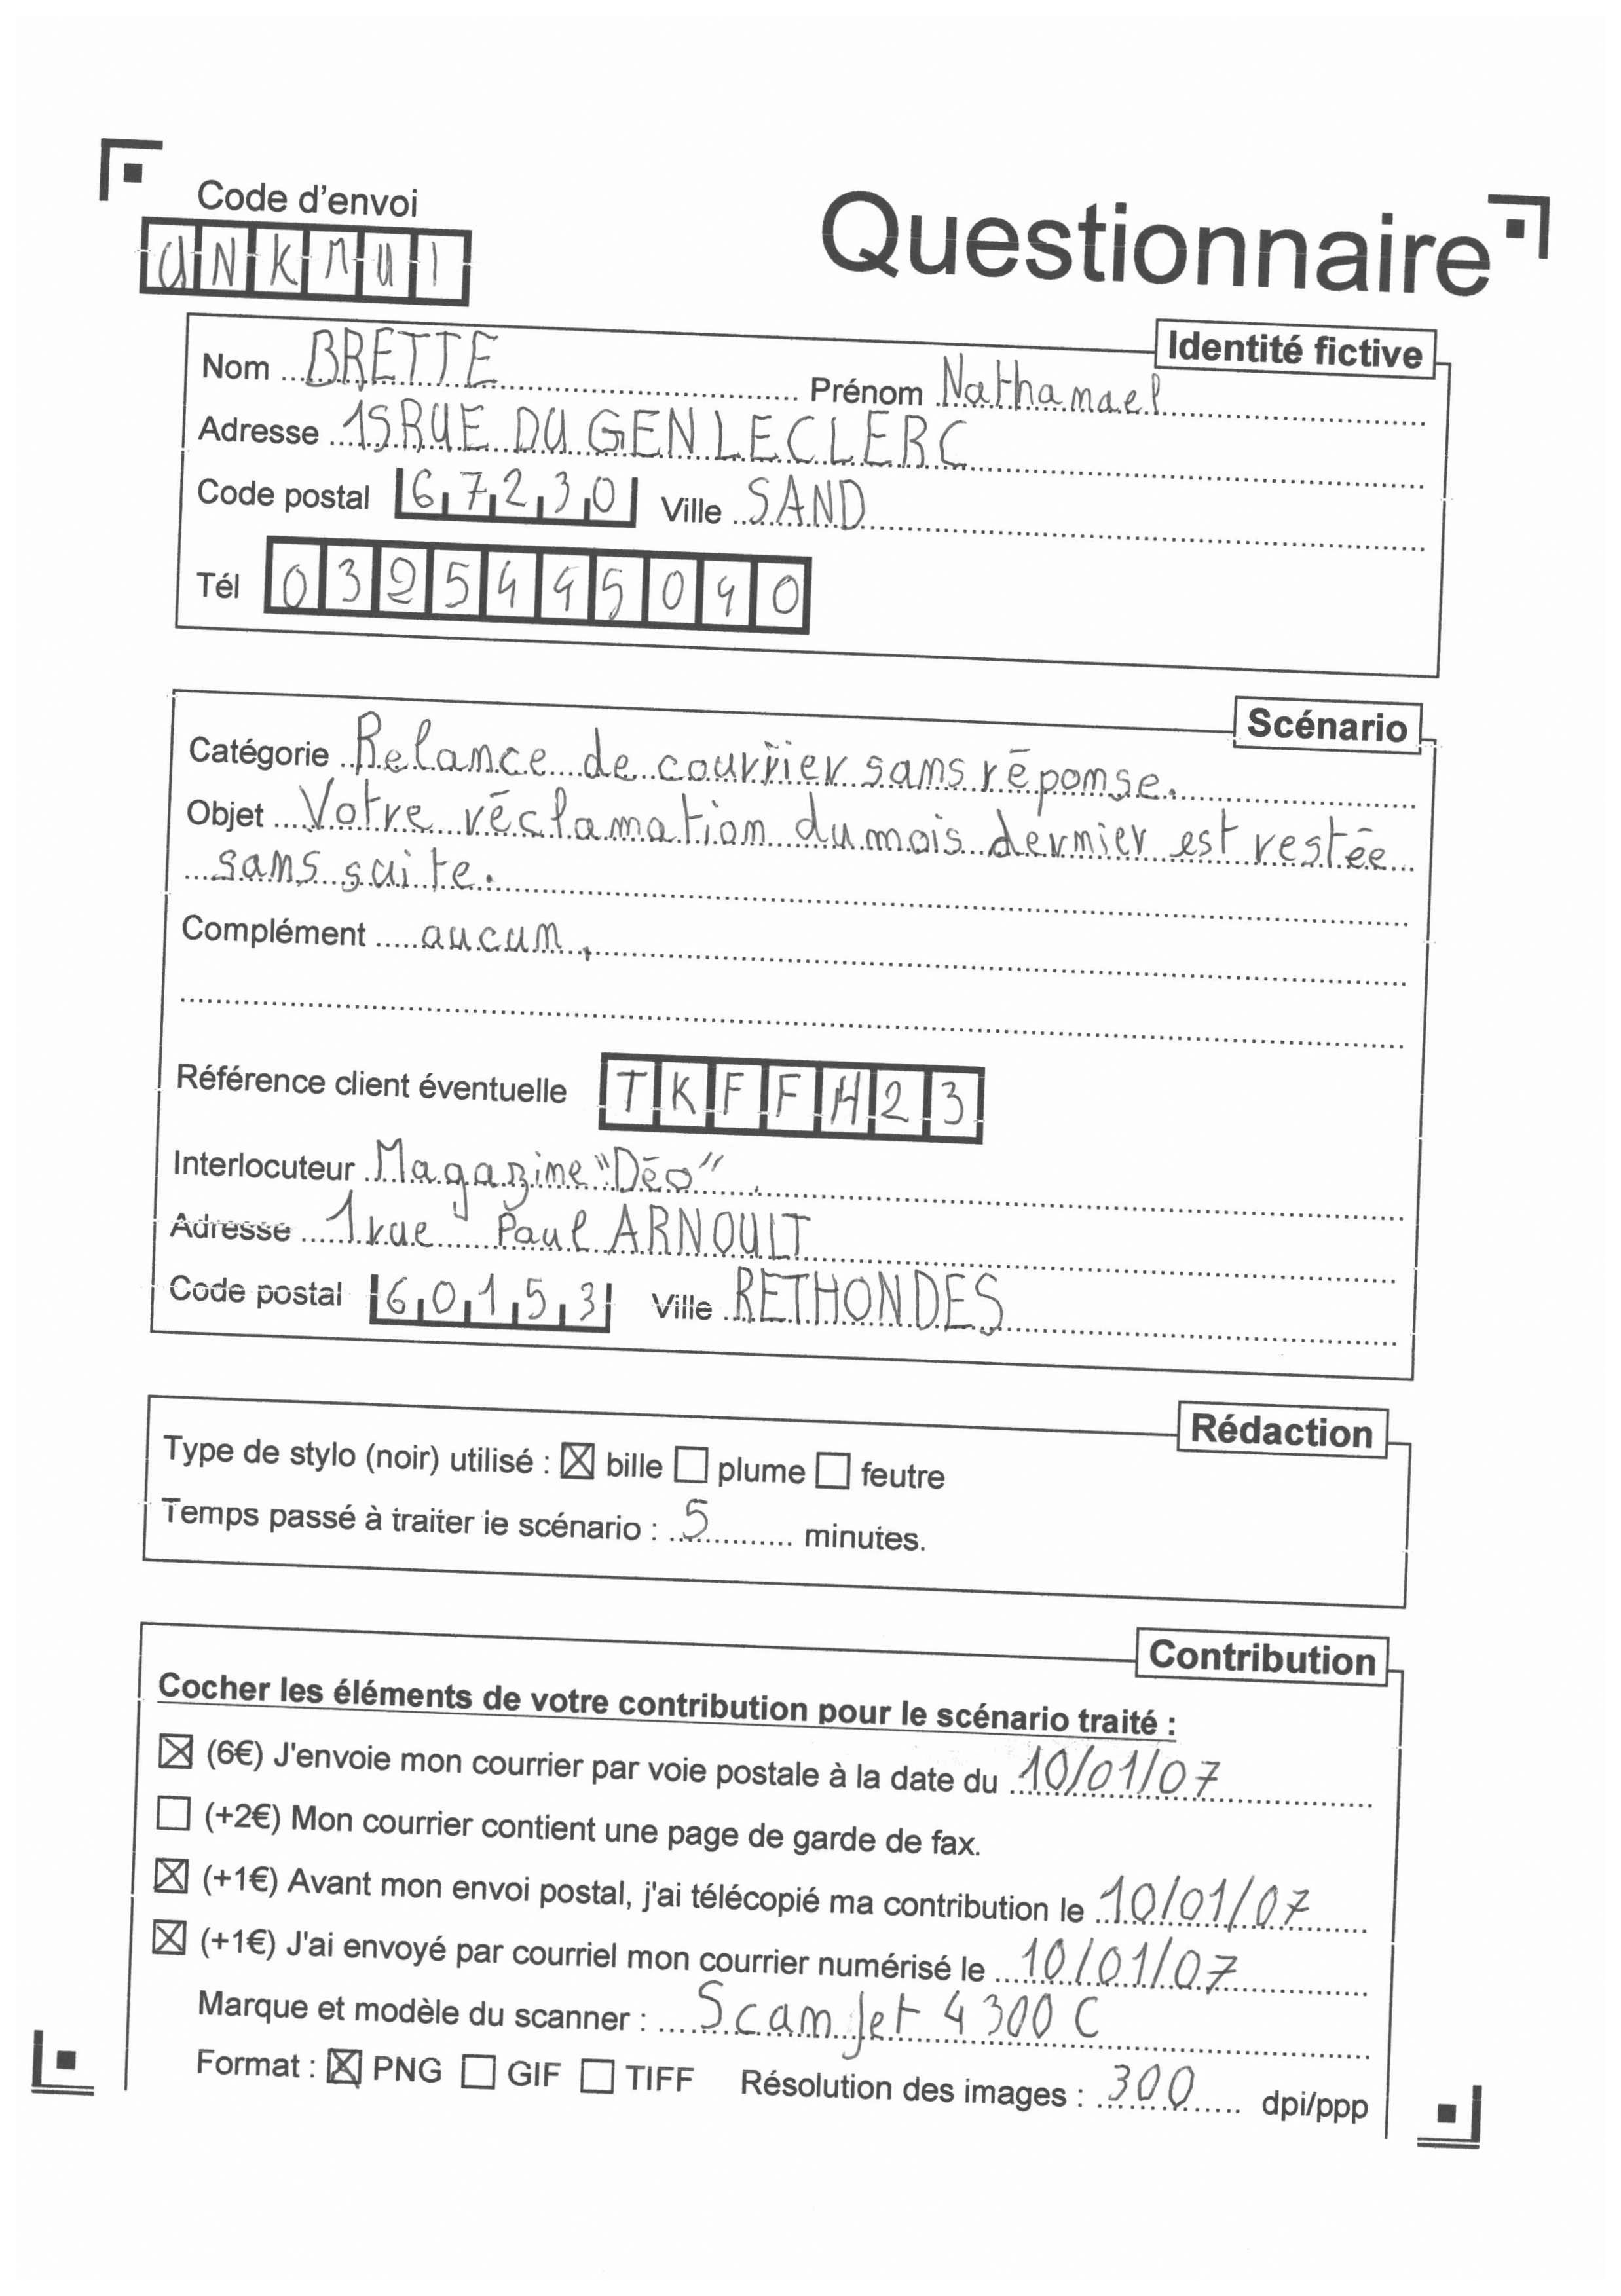 Code d'envoi
Questionnaire
UNKMUI
Identité fictive
Nom BRETTE Prénom Nathanael
Adresse 15 RUE DU GEN LECLERC
Code postal 67230 Ville SAND
Tél 0325445040
Scénario
Catégorie Relance de courrier sans réponse.
Objet Votre réclamation du mois dernier est restée
sans suite.
Complément aucun.
Référence client éventuelle TKFFH23
Interlocuteur Magazine "Déo".
Adresse 1 rue Paul ARNOULT
Code postal 60153 Ville RETHONDES
Rédaction
Type de stylo (noir) utilisé : ☒ bille ☐ plume ☐ feutre
Temps passé à traiter le scénario : 5 minutes.
Contribution
Cocher les éléments de votre contribution pour le scénario traité :
☒ (6€) J'envoie mon courrier par voie postale à la date du 10/01/07
☐ (+2€) Mon courrier contient une page de garde de fax.
☒ (+1€) Avant mon envoi postal, j'ai télécopié ma contribution le 10/01/07
☒ (+1€) J'ai envoyé par courriel mon courrier numérisé le 10/01/07
Marque et modèle du scanner : Scanjet 4300 C
Format : ☒ PNG ☐ GIF ☐ TIFF Résolution des images : 300 dpi/ppp